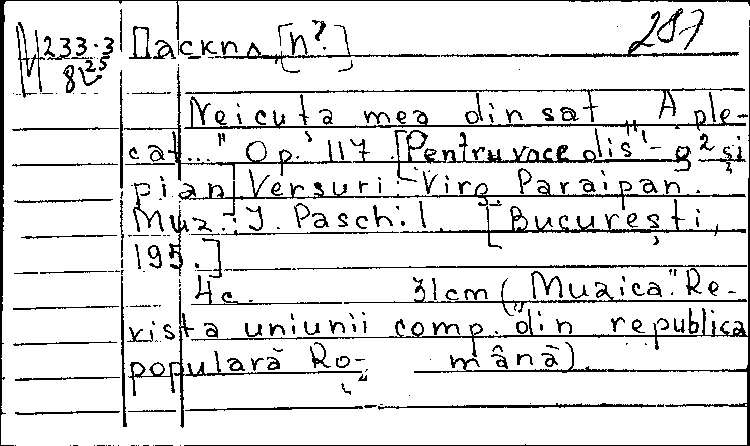 287
М 233-3 Паскил [n?]
8 25
Neicuța mea din sat „A ple-
cat..." Op. 117. [Pentru voce dis'-g² și
pian] Versuri: Viro Paraipan.
Muz.: I. Paschil. [București,
195.]
4c. 31cm („Muzica". Re-
vista uniunii comp. din republica
populară Ro- mână).